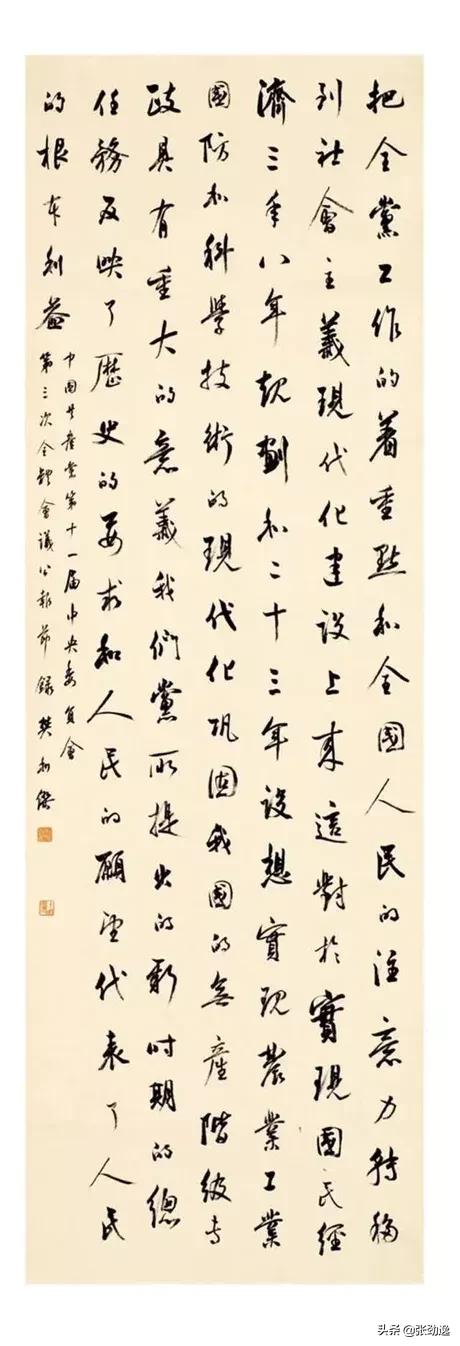 把全黨工作的着重點和全國人民的注意力轉移
到社會主義現代化建设上来這對於實現國民經
濟三年八年規劃和二十三年设想實現農業工業
國防和科學技術的現代化巩固我國的無產階級专
政具有重大的意義我們黨所提出的新时期的總
任務反映了歷史的要求和人民的願望代表了人民
的根本利益
中国共產党第十一届中央委员会
第三次全體會議公報節録樊利傑
头条 @张劲逸